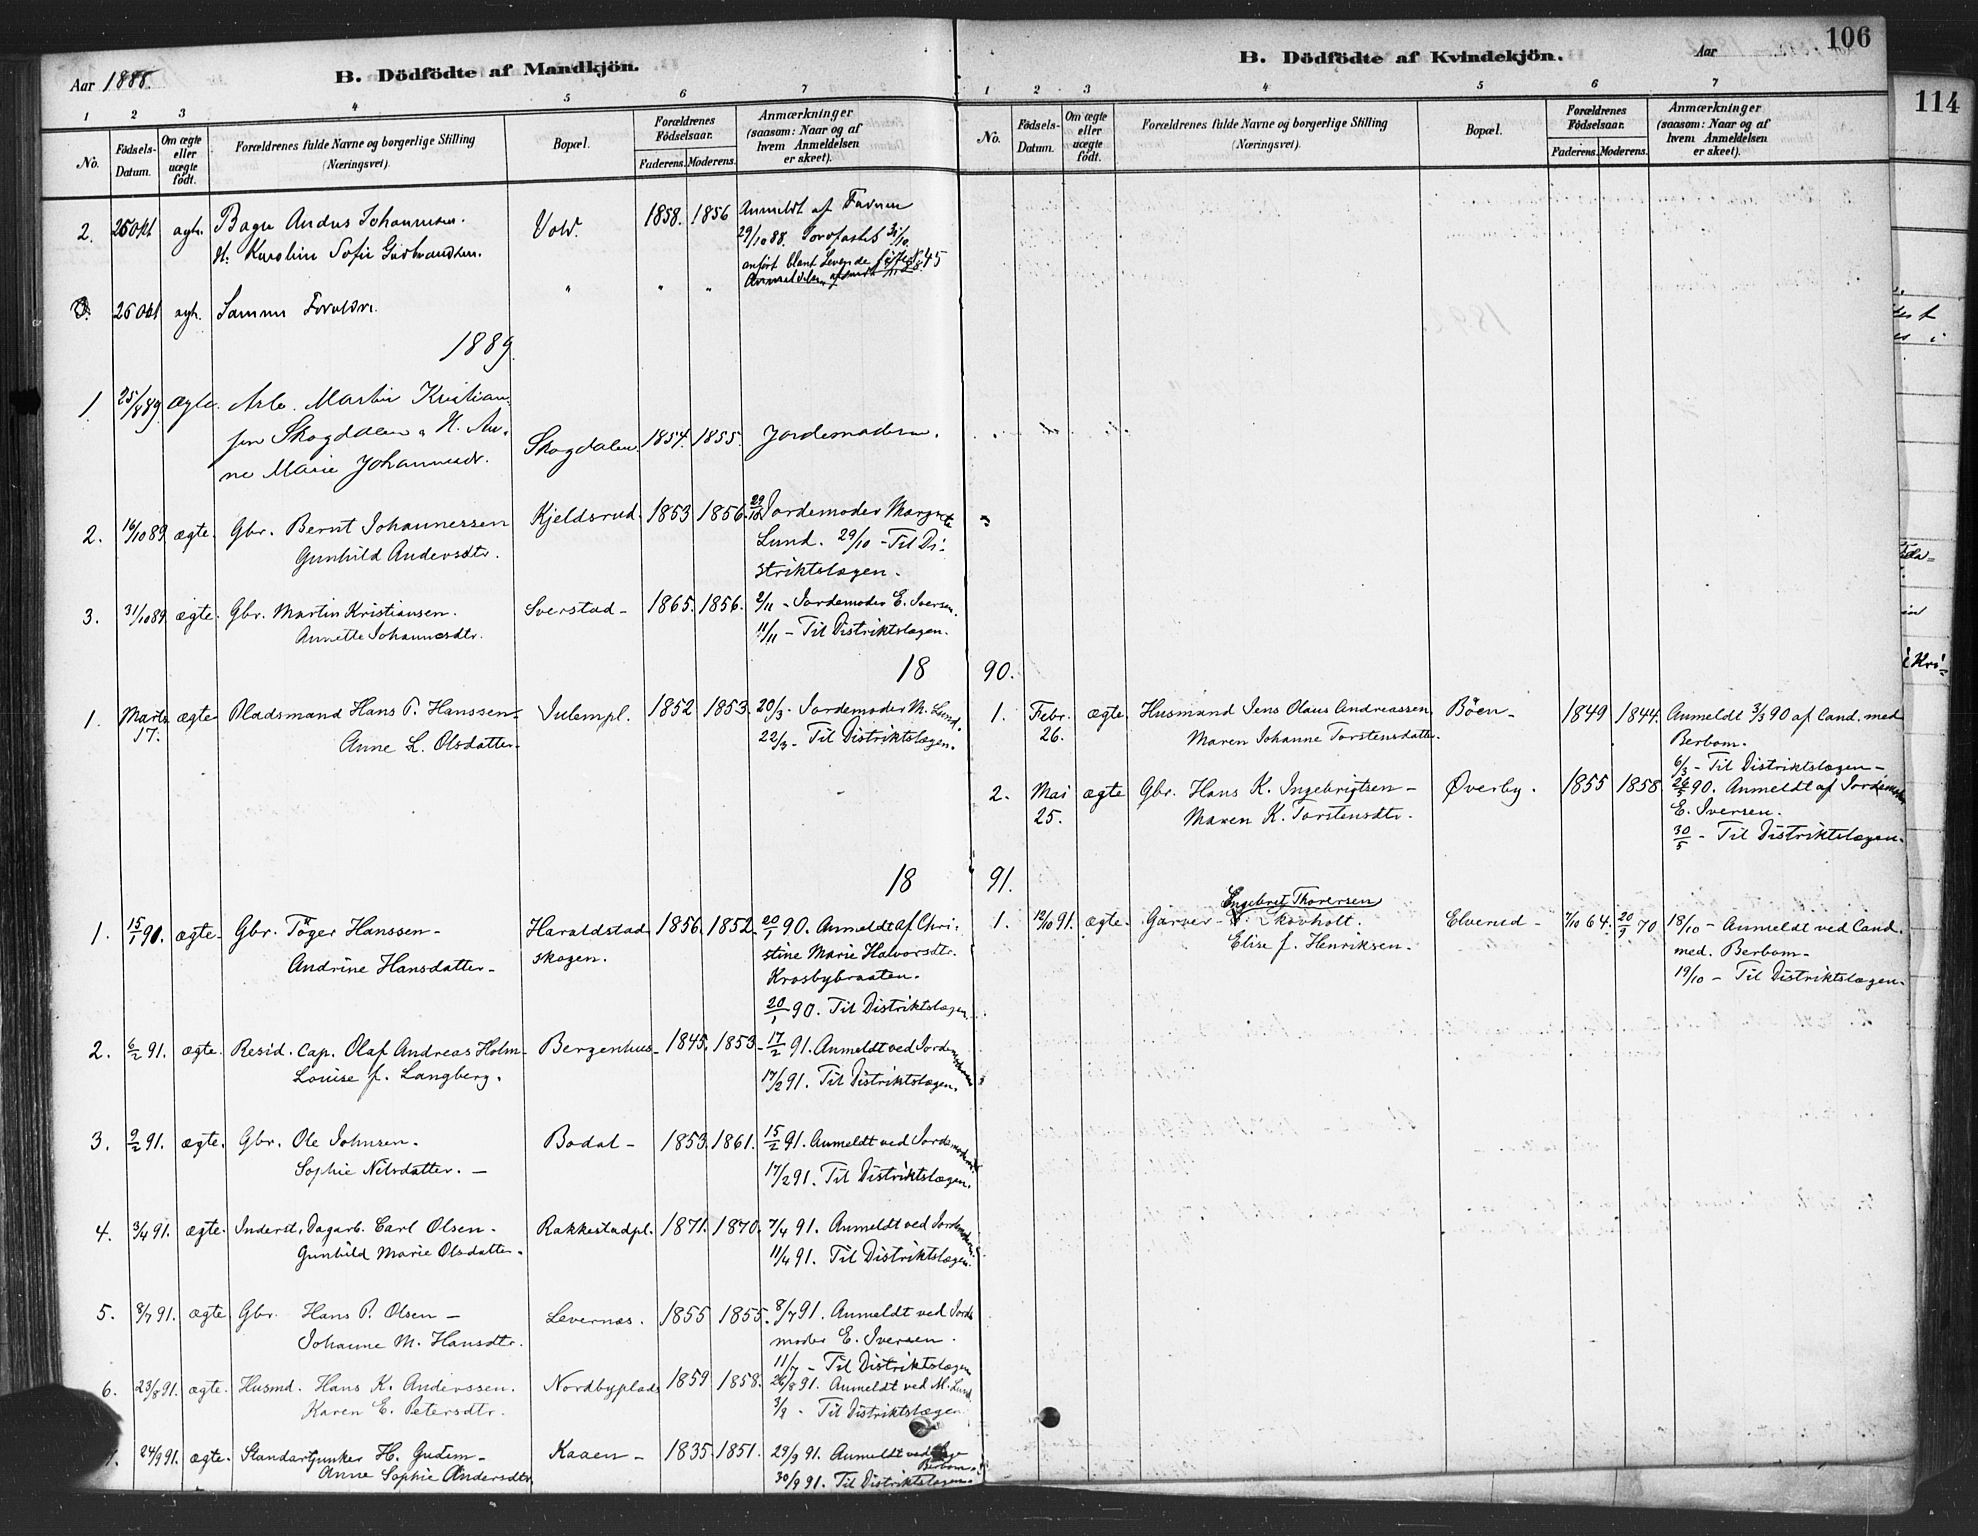 Aar 1888.
B. Dödfödte af Mandkjön.
1 2 3 4 5 6 7
No.
Födsels-Datum.
Om ægte eller uægte födt.
Forældrenes fulde Navne og borgerlige Stilling
(Næringsvei).
Bopæl.
Forældrenes Födselsaar.
Faderens. Moderens.
Anmærkninger
(saasom: Naar og af
hvem Anmeldelsen
er skeet).
2. 26 Okt ægte. Johannesen. Vold. 1858. 1856 Anmeldt af Faderen
29/10 88.
anført blant Levende
26 Okt ægt. Samme Forældre. " " "
1889.
1 25/8 89. ægte. Arb. Martin Kristian-
sen Skogdalen, H. An-
ne Marie Johannesdr. Skogdalen. 1854. 1855. Jordemoderen.
2. 16/10 89. ægte. Gbr. Bernt Johannessen Kjeldsrud. 1853 1856. 29/10 Jordemoder Margrete
Gunhild Andersdtr. Lund. 29/10 - Til Di-
striktslægen.
3. 31/10 89. ægte. Gbr. Martin Kristiansen. Sverstad - 1865. 1856. 2/11 - Jordemoder E. Iversen.
Annette Johannesdtr. 11/11 - Til Distriktslægen.
18
1. Marts 17. ægte Pladsmand Hans P. Hanssen - Julempl. 1852 1853. 20/3 - Jordemoder M. Lund.
Anne L. Olsdatter - 22/3 - Til Distriktslægen.
18
1. 15/1 91. ægte. Gbr. Töger Hanssen - Haraldstad 1856. 1852. 20/1 90. Anmeldt af Chri-
Andrine Hansdatter - skogen. stine Marie Halvorsdtr.
Krosbybraaten.
20/1 90. Til Distriktslægen.
2. 6/2 91. ægte. Resid. Cap. Olaf Andreas Holm - Bergenhus - 1845. 1853 - 17/2 91. Anmeldt ved Jordemoderen
Louise f. Langberg. 17/2 91. Til Distriktslægen.
3. 9/2 91. ægte. Gbr. Ole Johnsen. Bodal - 1853. 1861. 15/2 91. Anmeldt ved Jordemoderen
Sophie Nilsdatter. - 17/2 91. Til Distriktslægen.
4. 3/4 91. ægte. Inderst, Dagarb. Carl Olsen - Rakkestadpl. 1871. 1870. 7/4 91. Anmeldt ved Jordemoderen
Gunhild Marie Olsdatter. 11/4 91. Til Distriktslægen.
5. 8/7 91. ægte Gbr. Hans P. Olsen - Levernæs. 1855 1855. 8/7 91. Anmeldt ved Jorde
Johanne M. Hansdtr. moder E. Iversen.
11/7 - Til Distriktslægen
6. 23/8 91. ægte. Husmd. Hans K. Anderssen. Nordbyplads 1859 1858. 26/8 91. Anmeldt ved M. Lund
Karen E. Petersdtr. Til Distriktslægen
24/9 91. ægte. Standartjunker H. Gudem - Kaaen - 1835. 1851. 29/9 91. Anmeldt ved Berbom.
Anne Sophie Andersdtr 30/9 91. Til Distriktslægen.
B. Dödfödte af Kvindekjön.
Aar
106
1 2 3 4 5 6 7
No.
Födsels-Datum.
Om ægte eller uægte födt.
Forældrenes fulde Navne og borgerlige Stilling
(Næringsvei).
Bopæl.
Forældrenes Födselsaar.
Faderens. Moderens.
Anmærkninger
(saasom: Naar og af
hvem Anmeldelsen
er skeet).
90.
1. Febr. 26. ægte. Husmand Jens Olaus Andreassen Böen - 1849 1844. Anmeldt 3/3 90 af Cand. med
Maren Johanne Torstensdatter. Berbom.
6/3 - Til Distriktslægen -
2. Mai 25. ægte Gbr. Hans K. Ingebrigtsen - Øverby. 1855 1858. 26/5 90. Anmeldt af Jordemoder
Maren K. Torstensdtr. E. Iversen.
30/5 - Til Distriktslægen.
91.
Engebret Thoresen
1. 12/10 91. ægte. Garver - Skovholt. Elverud - 7/10 64. 20/9 70. 18/10 - Anmeldt ved Cand.
Elise f. Henriksen. med. Berbom.
19/10 - Til Distriktslægen.
114